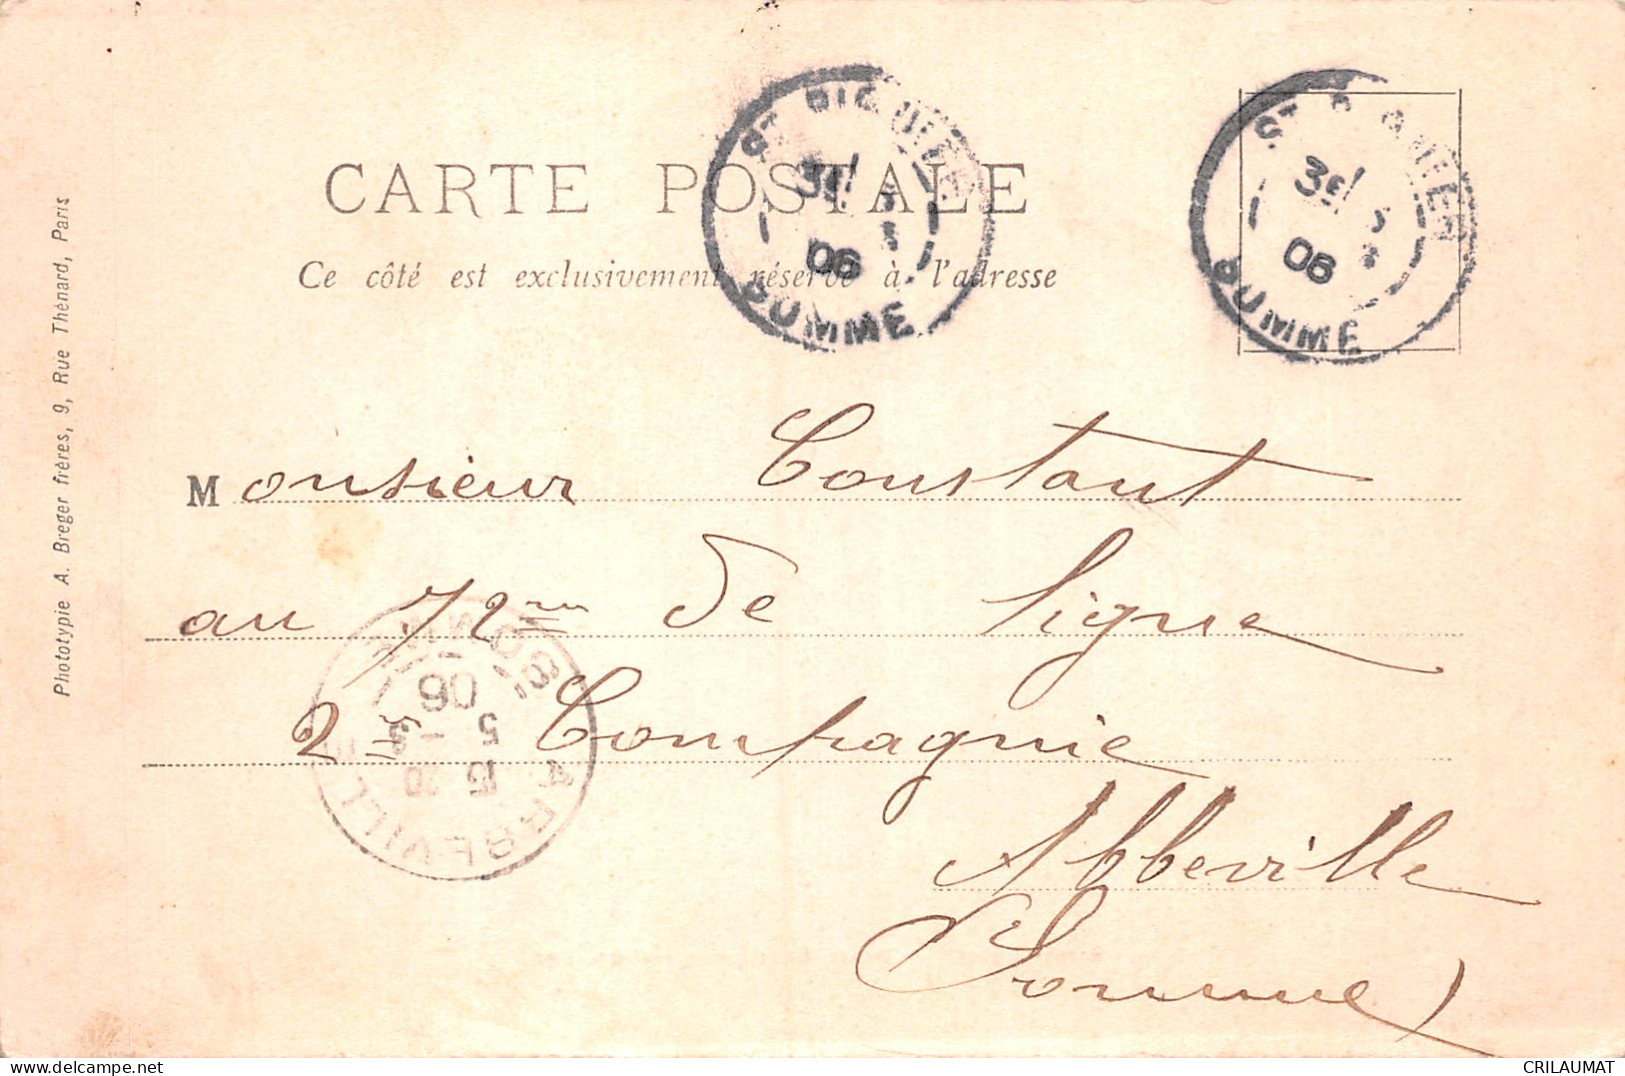 CARTE POSTALE
Ce côté est exclusivement réservé à l'adresse
ST RIQUIER
3E
06
SOMME
ST RIQUIER
3E
06
SOMME
Monsieur Constant
au 72me de ligne
2e Compagnie
Abbeville
(Somme)
ABBEVILLE
15 20
5 - 3
06
SOMME
Phototypie A. Breger frères, 9, Rue Thénard, Paris
CRILAUMAT